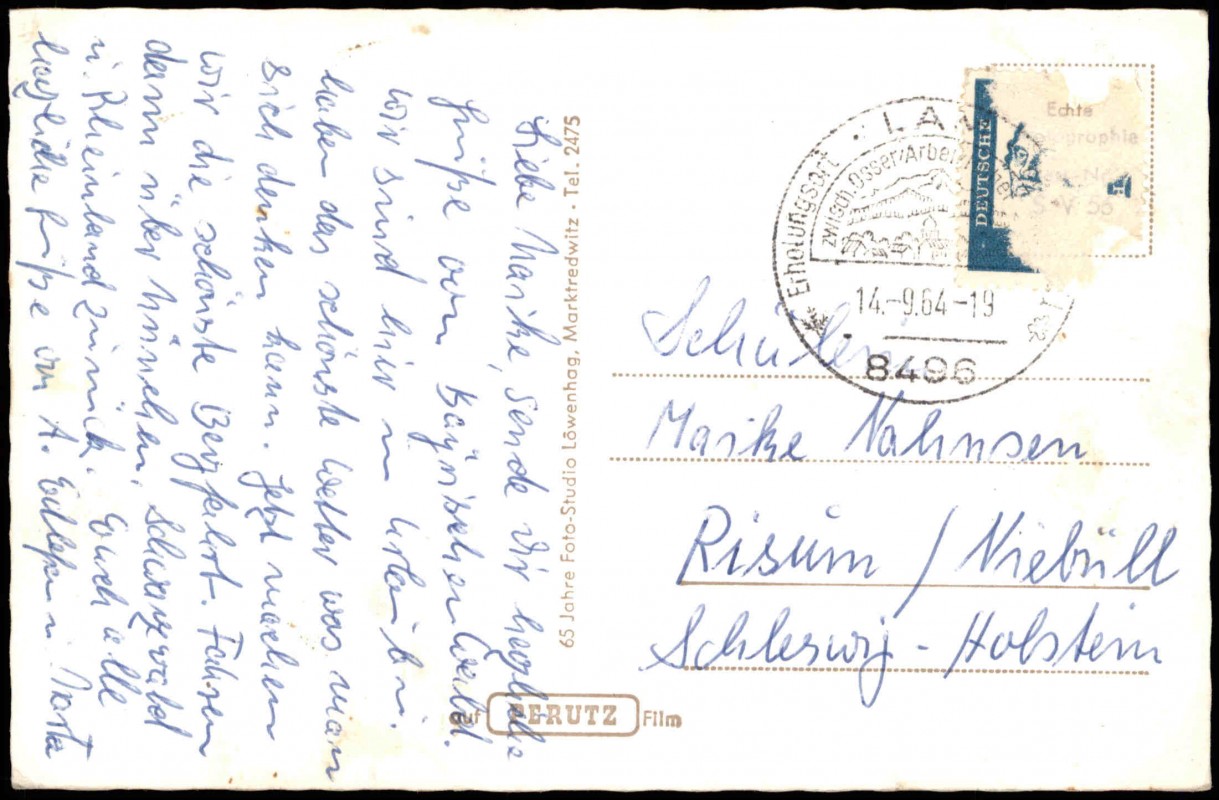 Liebe Maike, sende Dir herzliche
Grüße vom Bayrischen Wald.
Wir sind hier in Urlaub u.
haben das schönste Wetter was man
sich denken kann. Jetzt machen
wir die schönste Bergfahrt. Fahren
dann über München, Schwarzwald
u. Rheinland zurück. Euch alle
herzliche Grüße von A. Edlefsen u.
65 Jahre Foto-Studio Löwenhag, Marktredwitz · Tel. 2475
auf PERUTZ Film
Erholungsort LAM
zwisch. Osser/Arber
14.-9.64-19
8496
DEUTSCHE
Echte
S-V 56
Schülerin
Maike Nahnsen
Risum / Niebüll
Schleswig-Holstein